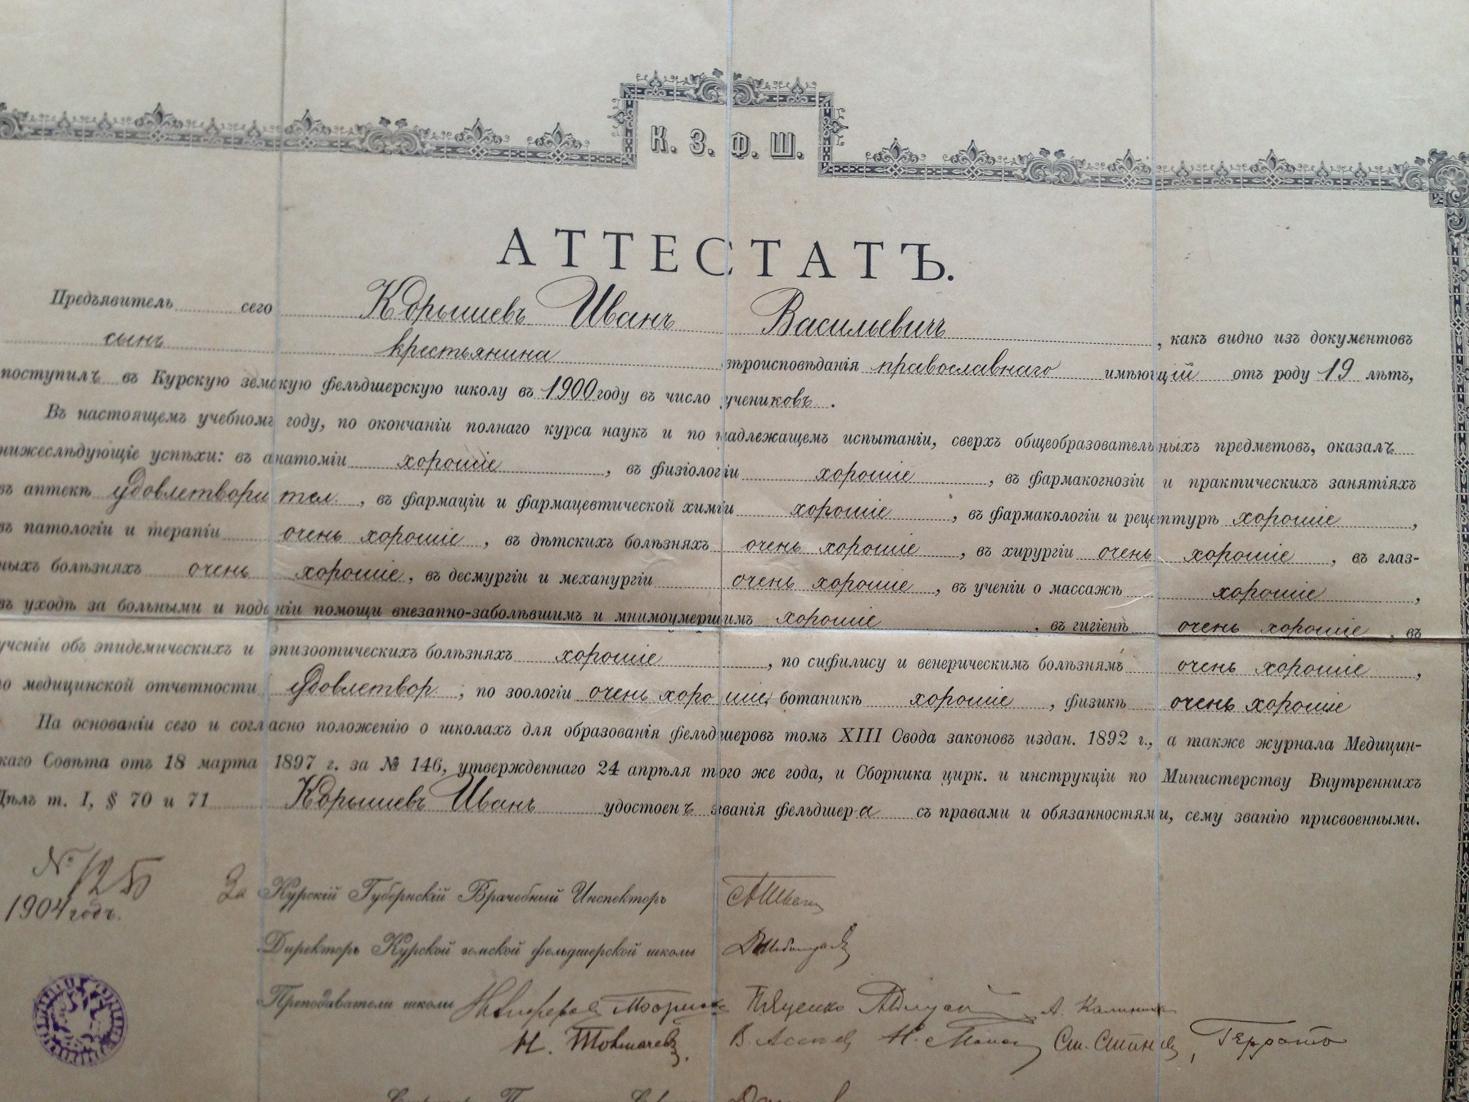 К. З. Ф. Ш.
АТТЕСТАТЪ.
Предъявитель сего Кдрышевъ Иванъ Васильевичъ, какъ видно изъ документовъ
сынъ крестьянина вѣроисповѣданія православнаго имѣющій отъ роду 19 лѣтъ,
поступилъ въ Курскую земскую фельдшерскую школу въ 1900 году въ число учениковъ.
Въ настоящемъ учебномъ году, по окончаніи полнаго курса наукъ и по надлежащемъ испытаніи, сверхъ общеобразовательныхъ предметовъ, оказалъ
нижеслѣдующіе успѣхи: въ анатоміи хорошіе, въ физіологіи хорошіе, въ фармакогнозіи и практическихъ занятіяхъ
въ аптекѣ удовлетворител., въ фармаціи и фармацевтической химіи хорошіе, въ фармакологіи и рецептурѣ хорошіе,
въ патологіи и терапіи очень хорошіе, въ дѣтскихъ болѣзняхъ очень хорошіе, въ хирургіи очень хорошіе, въ глаз-
ныхъ болѣзняхъ очень хорошіе, въ десмургіи и механургіи очень хорошіе, въ ученіи о массажѣ хорошіе,
въ уходѣ за больными и поданіи помощи внезапно-заболѣвшимъ и мнимоумершимъ хорошіе, въ гигіенѣ очень хорошіе, въ
ученіи объ эпидемическихъ и эпизоотическихъ болѣзняхъ хорошіе, по сифилису и венерическимъ болѣзнямъ очень хорошіе,
по медицинской отчетности удовлетвор., по зоологіи очень хорошіе, ботаникѣ хорошіе, физикѣ очень хорошіе
На основаніи сего и согласно положенію о школахъ для образованія фельдшеровъ томъ XIII Свода законовъ издан. 1892 г., а также журнала Медицин-
скаго Совѣта отъ 18 марта 1897 г. за № 146, утвержденнаго 24 апрѣля того же года, и Сборника цирк. и инструкціи по Министерству Внутреннихъ
Дѣлъ т. I, § 70 и 71 Кдрышевъ Иванъ удостоенъ званія фельдшер-а съ правами и обязанностями, сему званію присвоенными.
№ 125
1904 годъ.
За Курскій Губернскій Врачебный Инспекторъ
Директоръ Курской земской фельдшерской школы
Преподаватели школы Яценко А. Калинин
Н. Товмачевъ В. Асеевъ